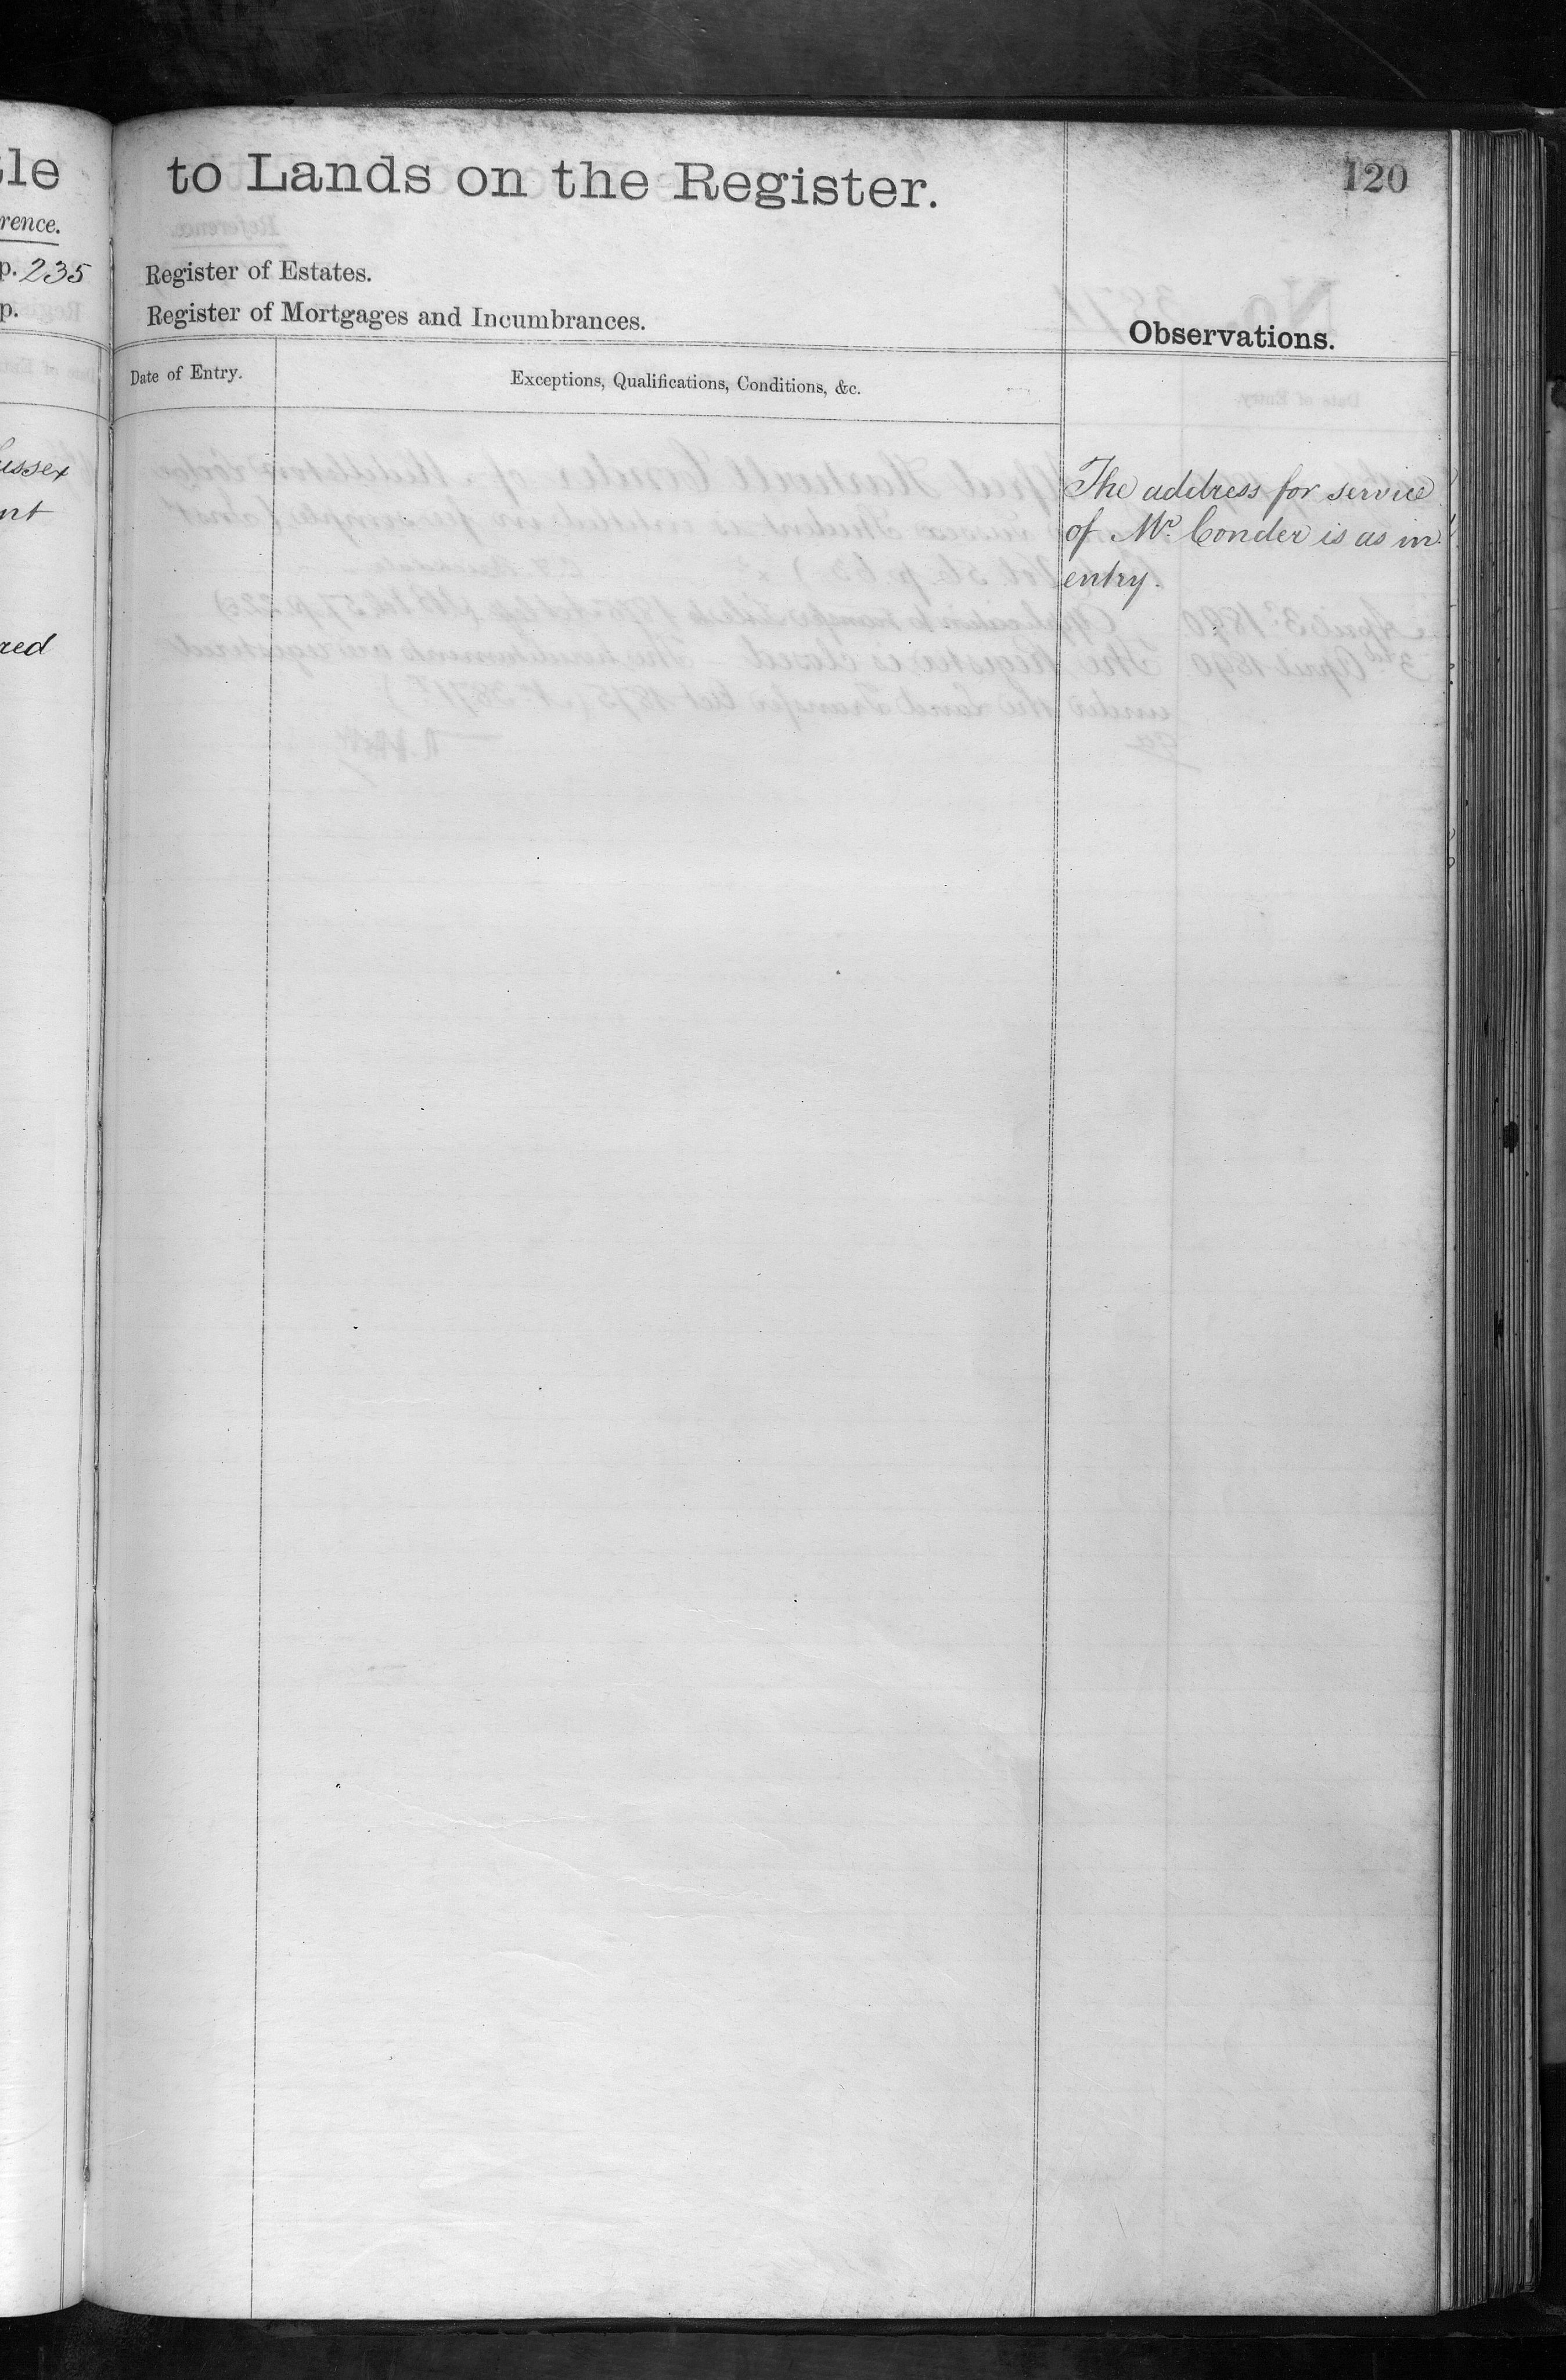 tle
rence.
p. 235
p.
ussex
nt
red
to Lands on the Register.
120
Register of Estates.
Register of Mortgages and Incumbrances.
Observations.
Date of Entry.
Exceptions, Qualifications, Conditions, &c.
The address for service
of Mr. Conder is as in
entry.